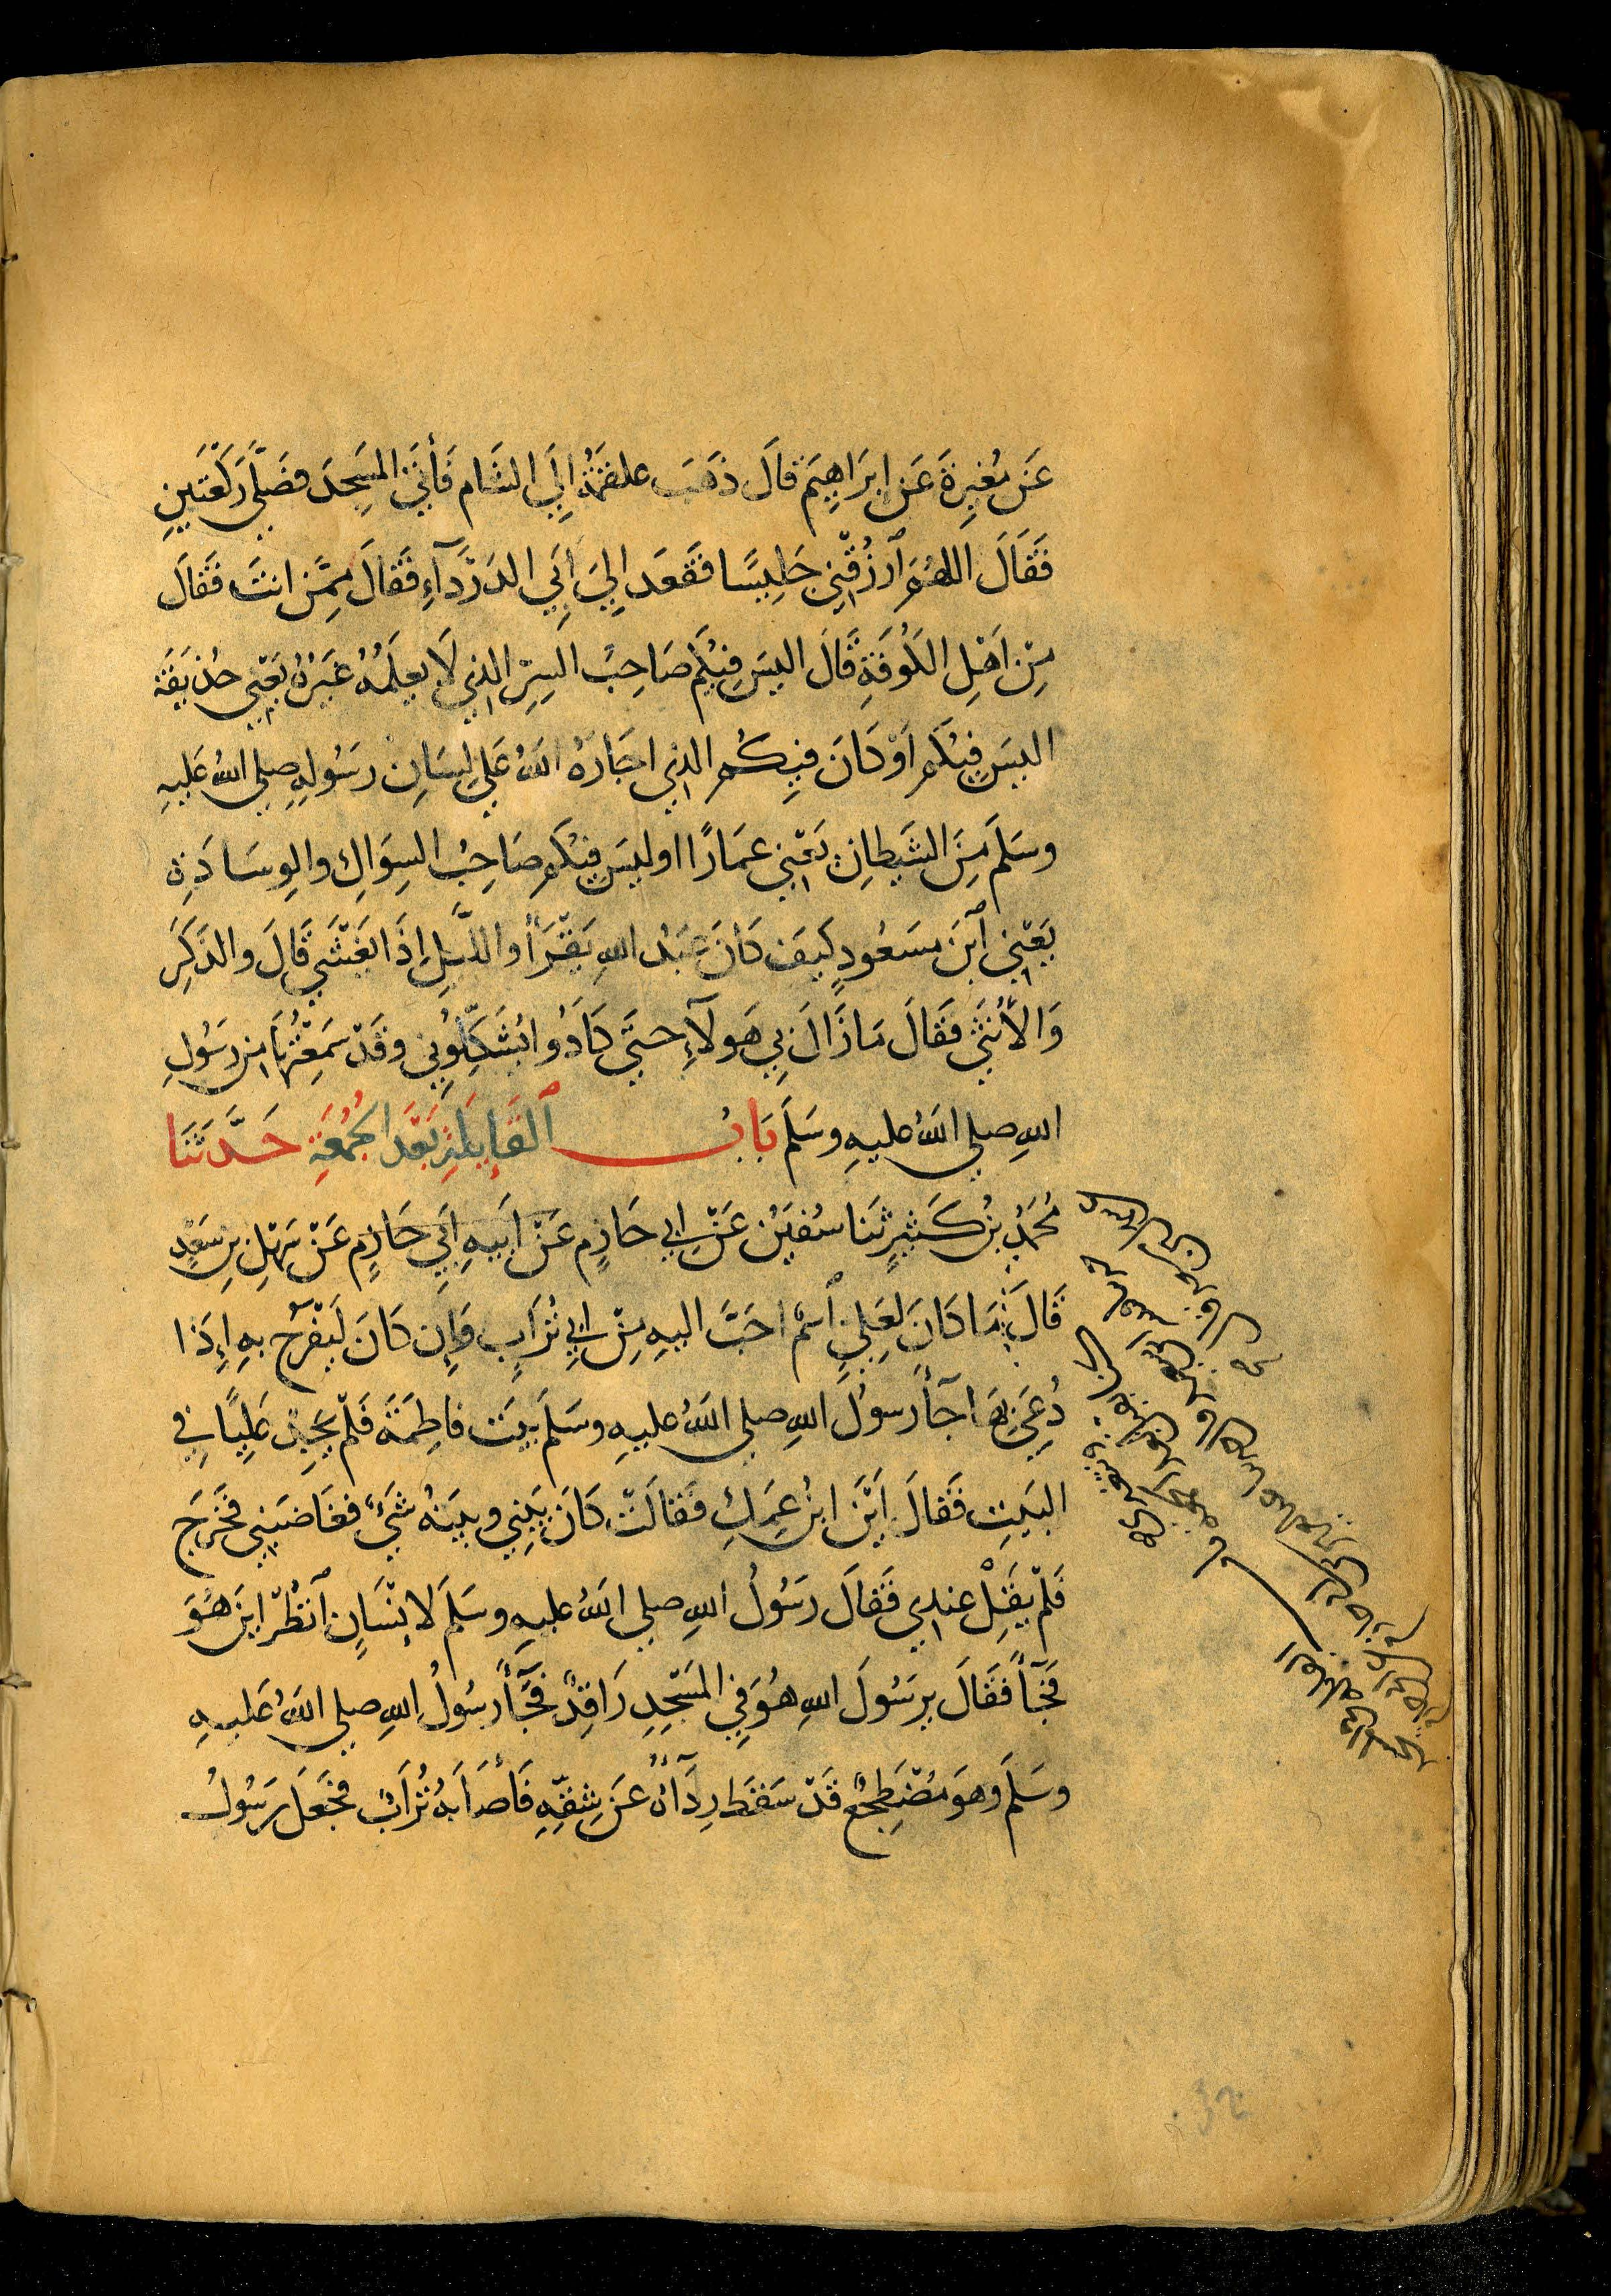 عَن مُغِيرَةَ عَن اِبرَاهِيمَ قَالَ ذَهَبَ علقمَةُ اِلَي الشام فَأَتَي المَسجِدَ فصَلَّي رَكعَتَينِ
فَقَالَ اللهُمَ ارزُقنِي جَلِيسًا فقَعَد اِلَي اَبِي الدَردَآءِ فقَالَ مِمَّن انتَ فَقَالَ
مِن اَهلِ الكُوفَةِ قَالَ اليسَ فِيكُم صَاحِبُ السِرِ الذِي لَا يعلَمُهُ غَيرُهُ يَعنِي حُذَيفَة
اليسَ فِيكُم اَو كَانَ فِيكُم الذِي اجَارَهُ اللهُ عَلي لِسَانِ رسُولِهِ صلي اللهُ عَليهِ
وسَلَمَ مِنَ الشَيطانِ يَعنِي عمَارًا اوليسَ فِيكُم صَاحِبُ السِوَاكِ والوِسَادَةِ
يَعنِي ابنَ مسعُودٍ كَيفَ كَانَ عَبدُ اللهِ يَقرَأُ والليلِ اِذَا يَغشَي قَالَ والذَكَرَ
وَالأُنثَي فَقَالَ مَا زَالَ بِي هَولآءِ حتَي كَادُوا يُشَكِكُونِي وقَد سَمِعتُهَا مِن رسُولِ
اللهِ صلي اللهُ عليهِ وسَلَمَ بَابُ القَايِلَةِ بَعدَ الجُمُعَةِ حَدَّثَنَا
مُحَمَدُ بنُ كَثِيرٍ ثنَا سُفيَن عَن ابِي حَازِمٍ عَن اَبيهِ اَبِي حَازِمٍ عَن سَهلِ بنِ سَعدٍ
قَالَ مَا كَانَ لِعَلِيٍ اسمٌ احَبَّ اليهِ مِن ابِي تُرَابٍ وَاِن كَانَ لَيَفرَحُ بهِ اِذَا
دُعِيَ بِهَا جَآ رسُولُ اللهِ صلي اللهُ عليهِ وسَلَمَ بَيتَ فاطِمَةَ فَلَم يَجِد عَلِيًا فِي
البَيتِ فَقَالَ اَينَ ابنُ عَمِكِ فقَالَت كَانَ بَينِي وبينَهُ شَيءٌ فغَاضَبَنِي فخَرَجَ
فَلَم يَقِل عِندِي فَقَالَ رَسُولُ اللهِ صلي اللهُ عليهِ وسَلَمَ لاِنسَانٍ انظُر اينَ هُوَ
فَجَآ فَقَالَ يرسُولَ اللهِ هُوَ فِي المَسجِدِ رَاقِدٌ فَجَآ رسُولُ اللهِ صلي اللهُ عَليهِ
وسَلَمَ وهوَ مُضطَجِعٌ قَد سَقَطَ رِدَآؤُهُ عَن شِقِّهِ فَأصَابَهُ تُرَابٌ فجَعَلَ رَسُولُ